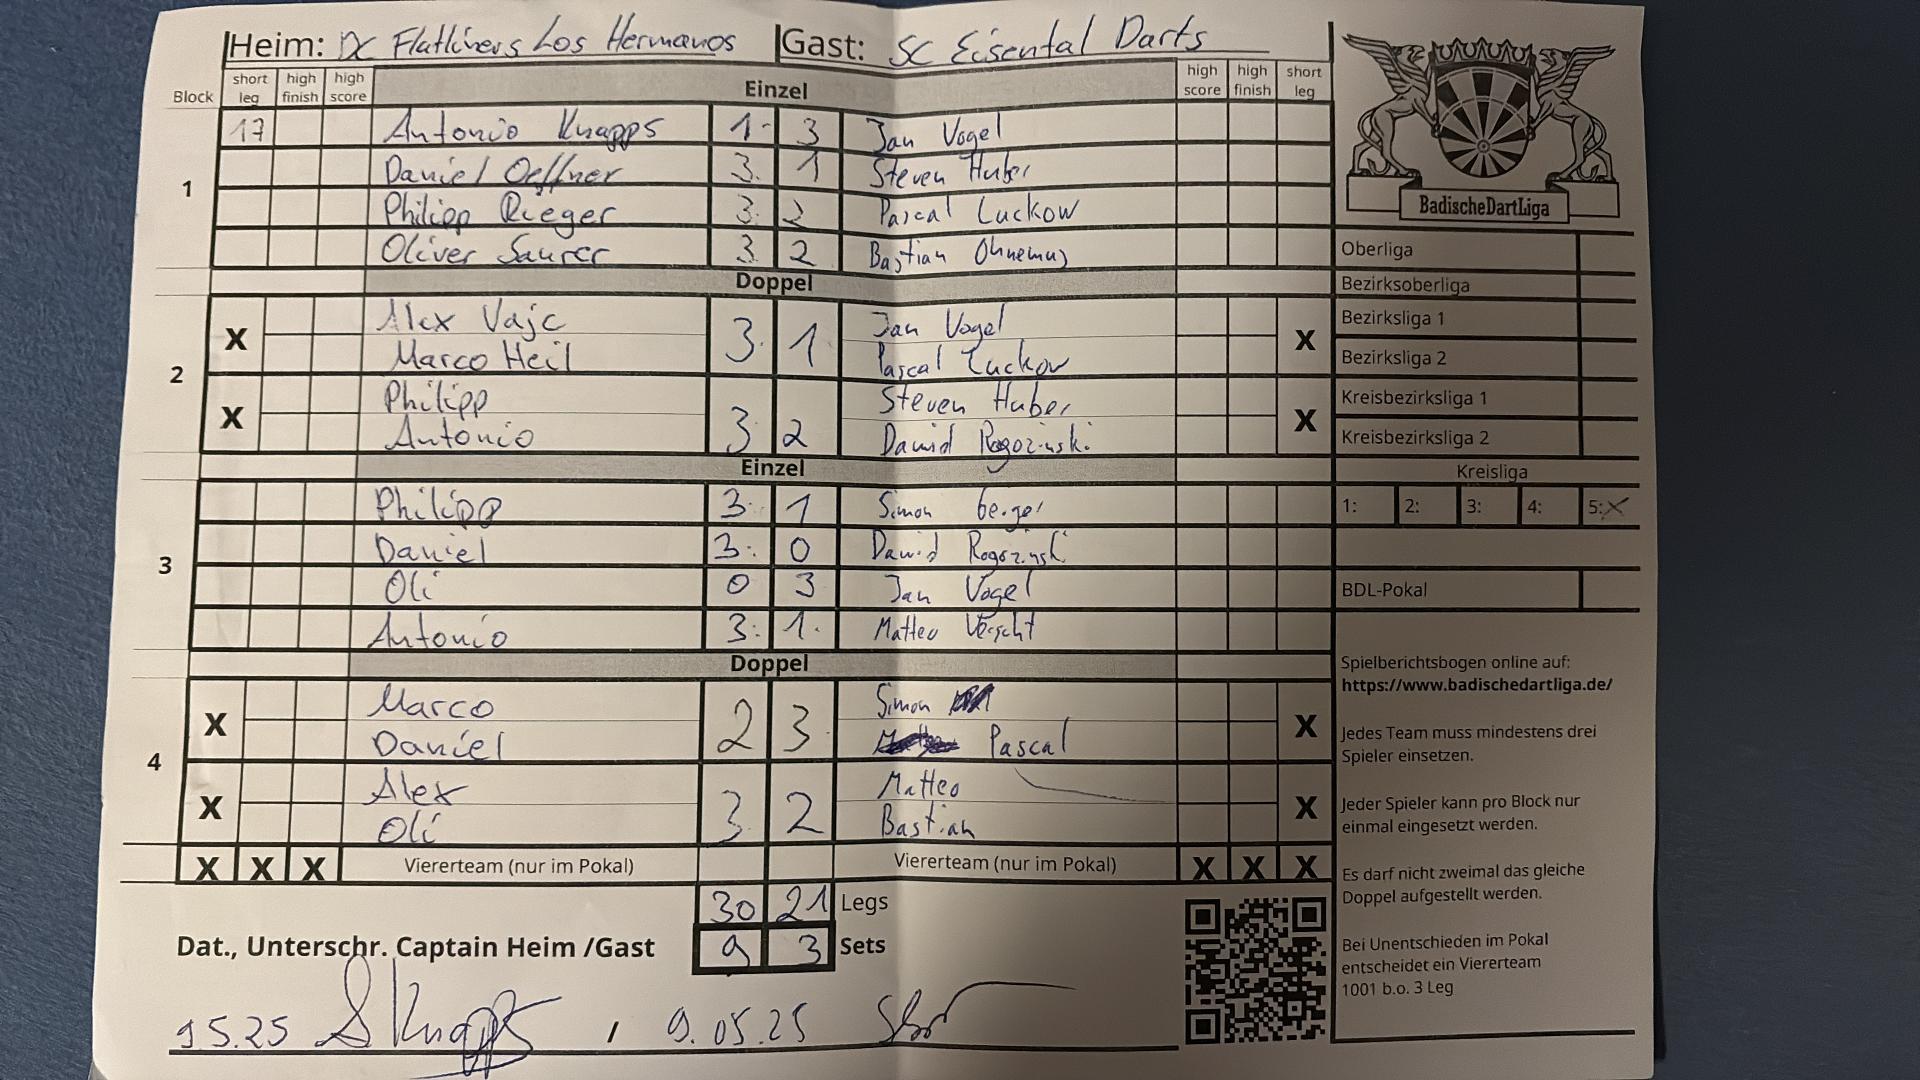 Heim: DC Flatliners Los Hermanos Gast: SC Eisental Darts
Block short leg high finish high score Einzel high score high finish short leg
1
17 Antonio Knapps 1 3 Jan Vogel
Daniel Oeffner 3 1 Steven Huber
Philipp Rieger 3 2 Pascal Luckow
Oliver Saurer 3 2 Bastian Ohnemus
Doppel
2
X Alex Vajc 3 1 Jan Vogel X
Marco Heil Pascal Luckow
X Philipp 3 2 Steven Huber X
Antonio Dawid Rogozinski
Einzel
3
Philipp 3 1 Simon berger
Daniel 3 0 Dawid Rogozinski
Oli 0 3 Jan Vogel
Antonio 3 1 Matteo
Doppel
4
X Marco 2 3 Simon X
Daniel Pascal
X Alex 3 2 Matteo X
Oli Bastian
X X X Viererteam (nur im Pokal) Viererteam (nur im Pokal) X X X
30 21 Legs
9 3 Sets
Dat., Unterschr. Captain Heim /Gast
9.5.25 A Knapps / 9.05.25
BadischeDartLiga
Oberliga
Bezirksoberliga
Bezirksliga 1
Bezirksliga 2
Kreisbezirksliga 1
Kreisbezirksliga 2
Kreisliga
1: 2: 3: 4: 5: X
BDL-Pokal
Spielberichtsbogen online auf:
https://www.badischedartliga.de/
Jedes Team muss mindestens drei
Spieler einsetzen.
Jeder Spieler kann pro Block nur
einmal eingesetzt werden.
Es darf nicht zweimal das gleiche
Doppel aufgestellt werden.
Bei Unentschieden im Pokal
entscheidet ein Viererteam
1001 b.o. 3 Leg